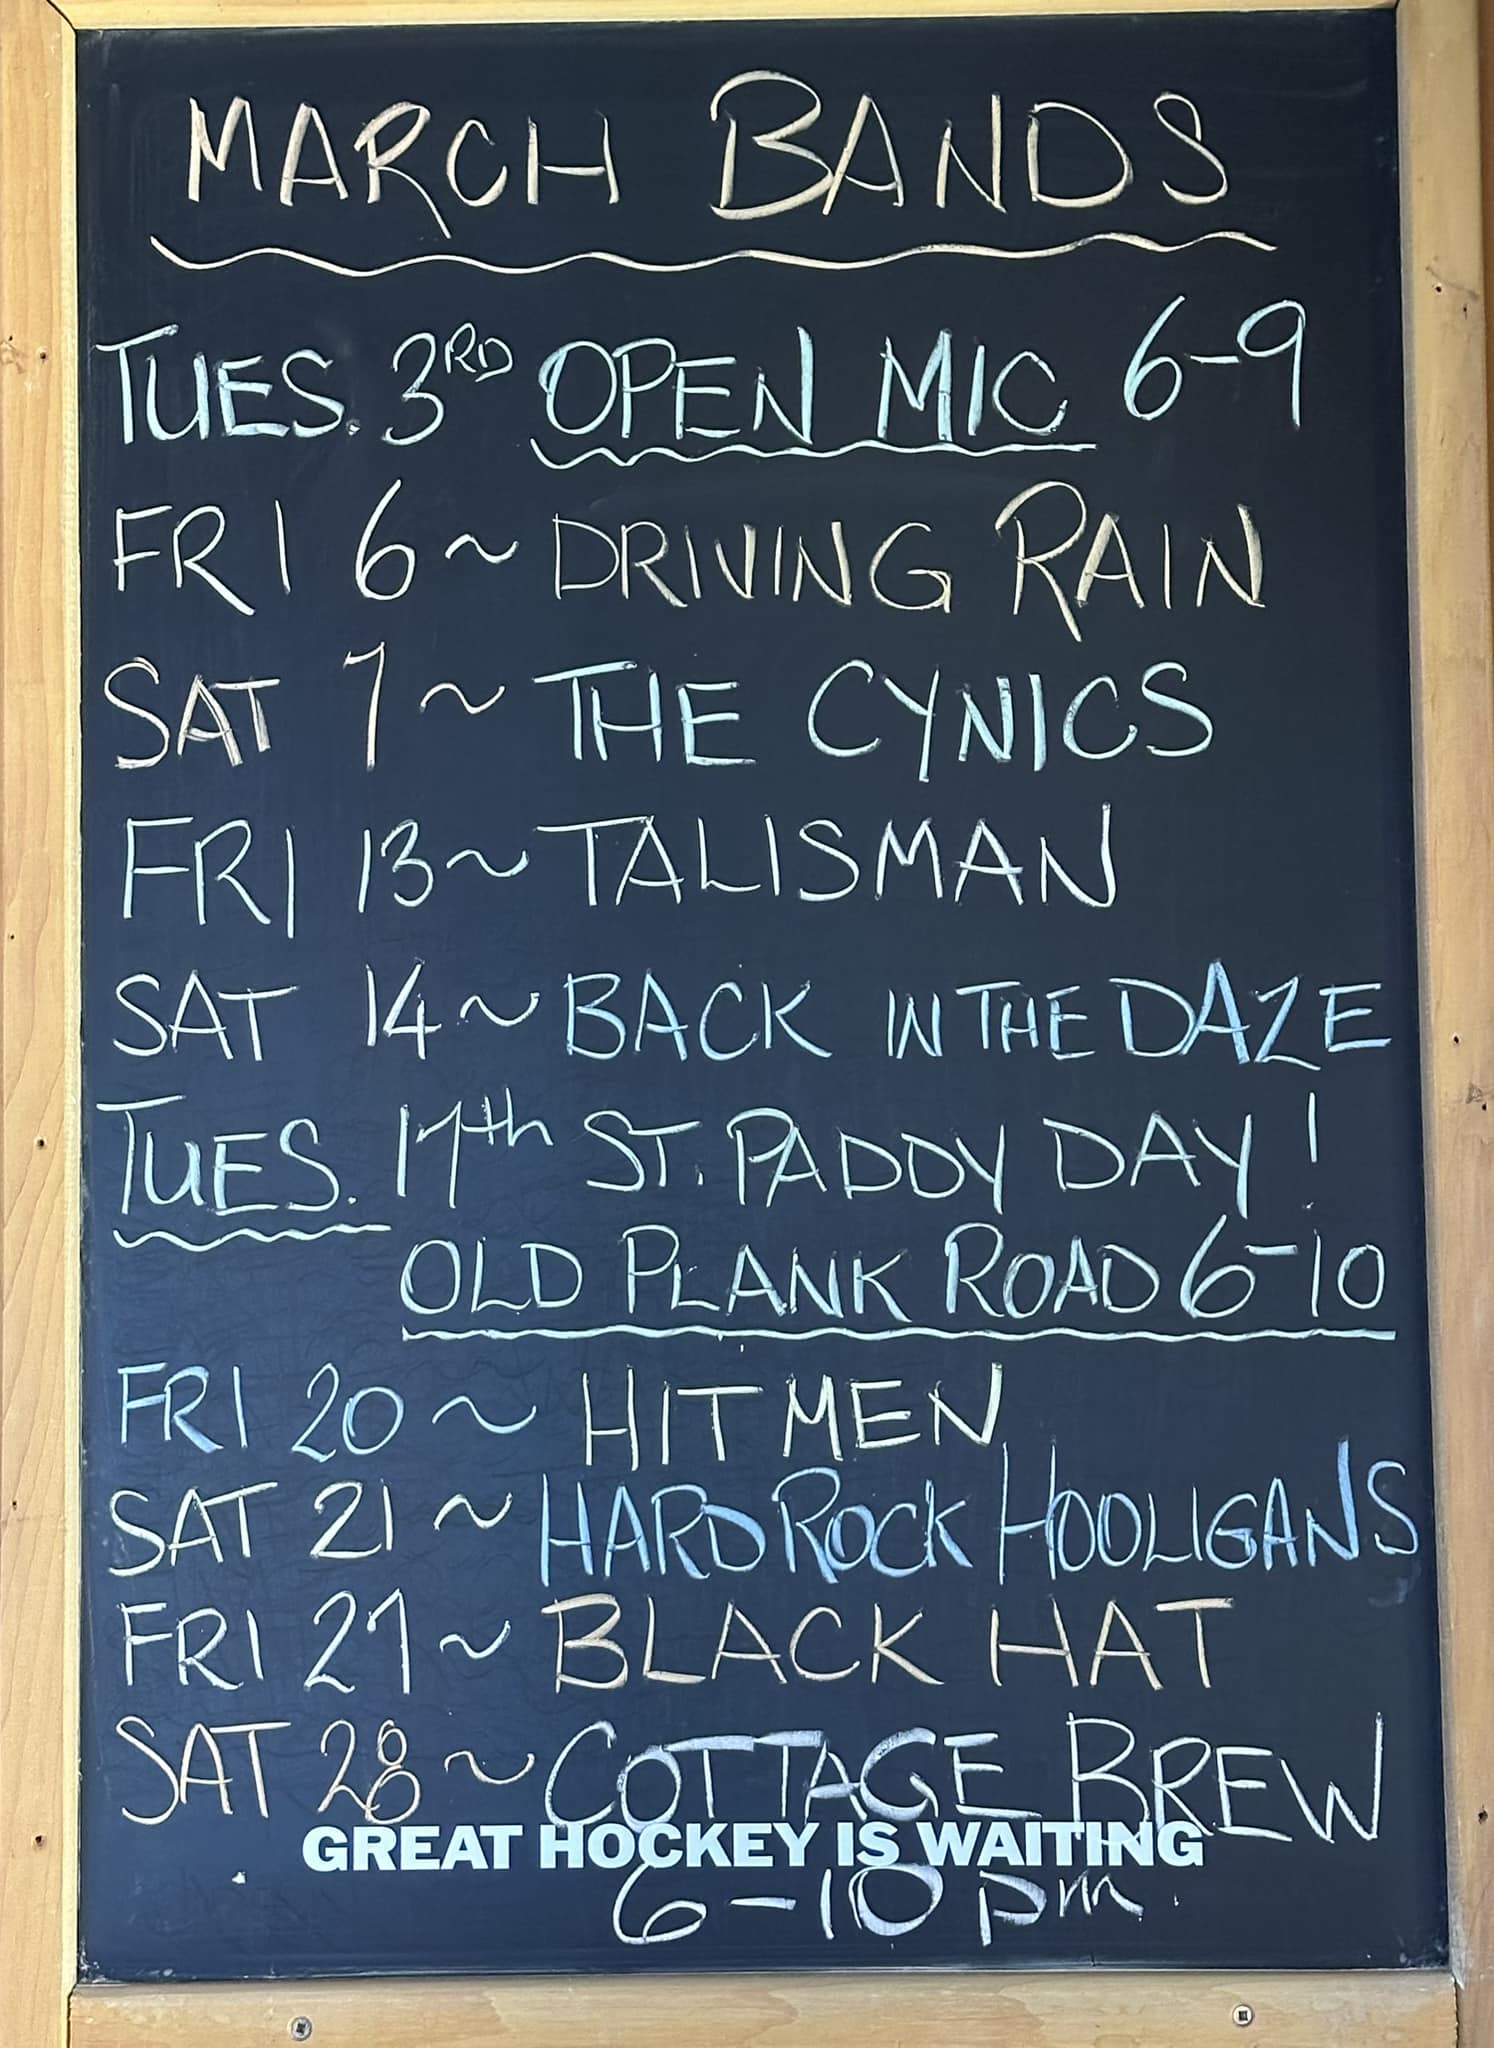 MARCH BANDS
TUES. 3RD OPEN MIC 6-9
FRI 6 ~ DRIVING RAIN
SAT 7 ~ THE CYNICS
FRI 13 ~ TALISMAN
SAT 14 ~ BACK IN THE DAZE
TUES. 17th ST. PADDY DAY!
OLD PLANK ROAD 6-10
FRI 20 ~ HIT MEN
SAT 21 ~ HARD ROCK HOOLIGANS
FRI 27 ~ BLACK HAT
SAT 28 ~ COTTAGE BREW
GREAT HOCKEY IS WAITING
6-10 pm.